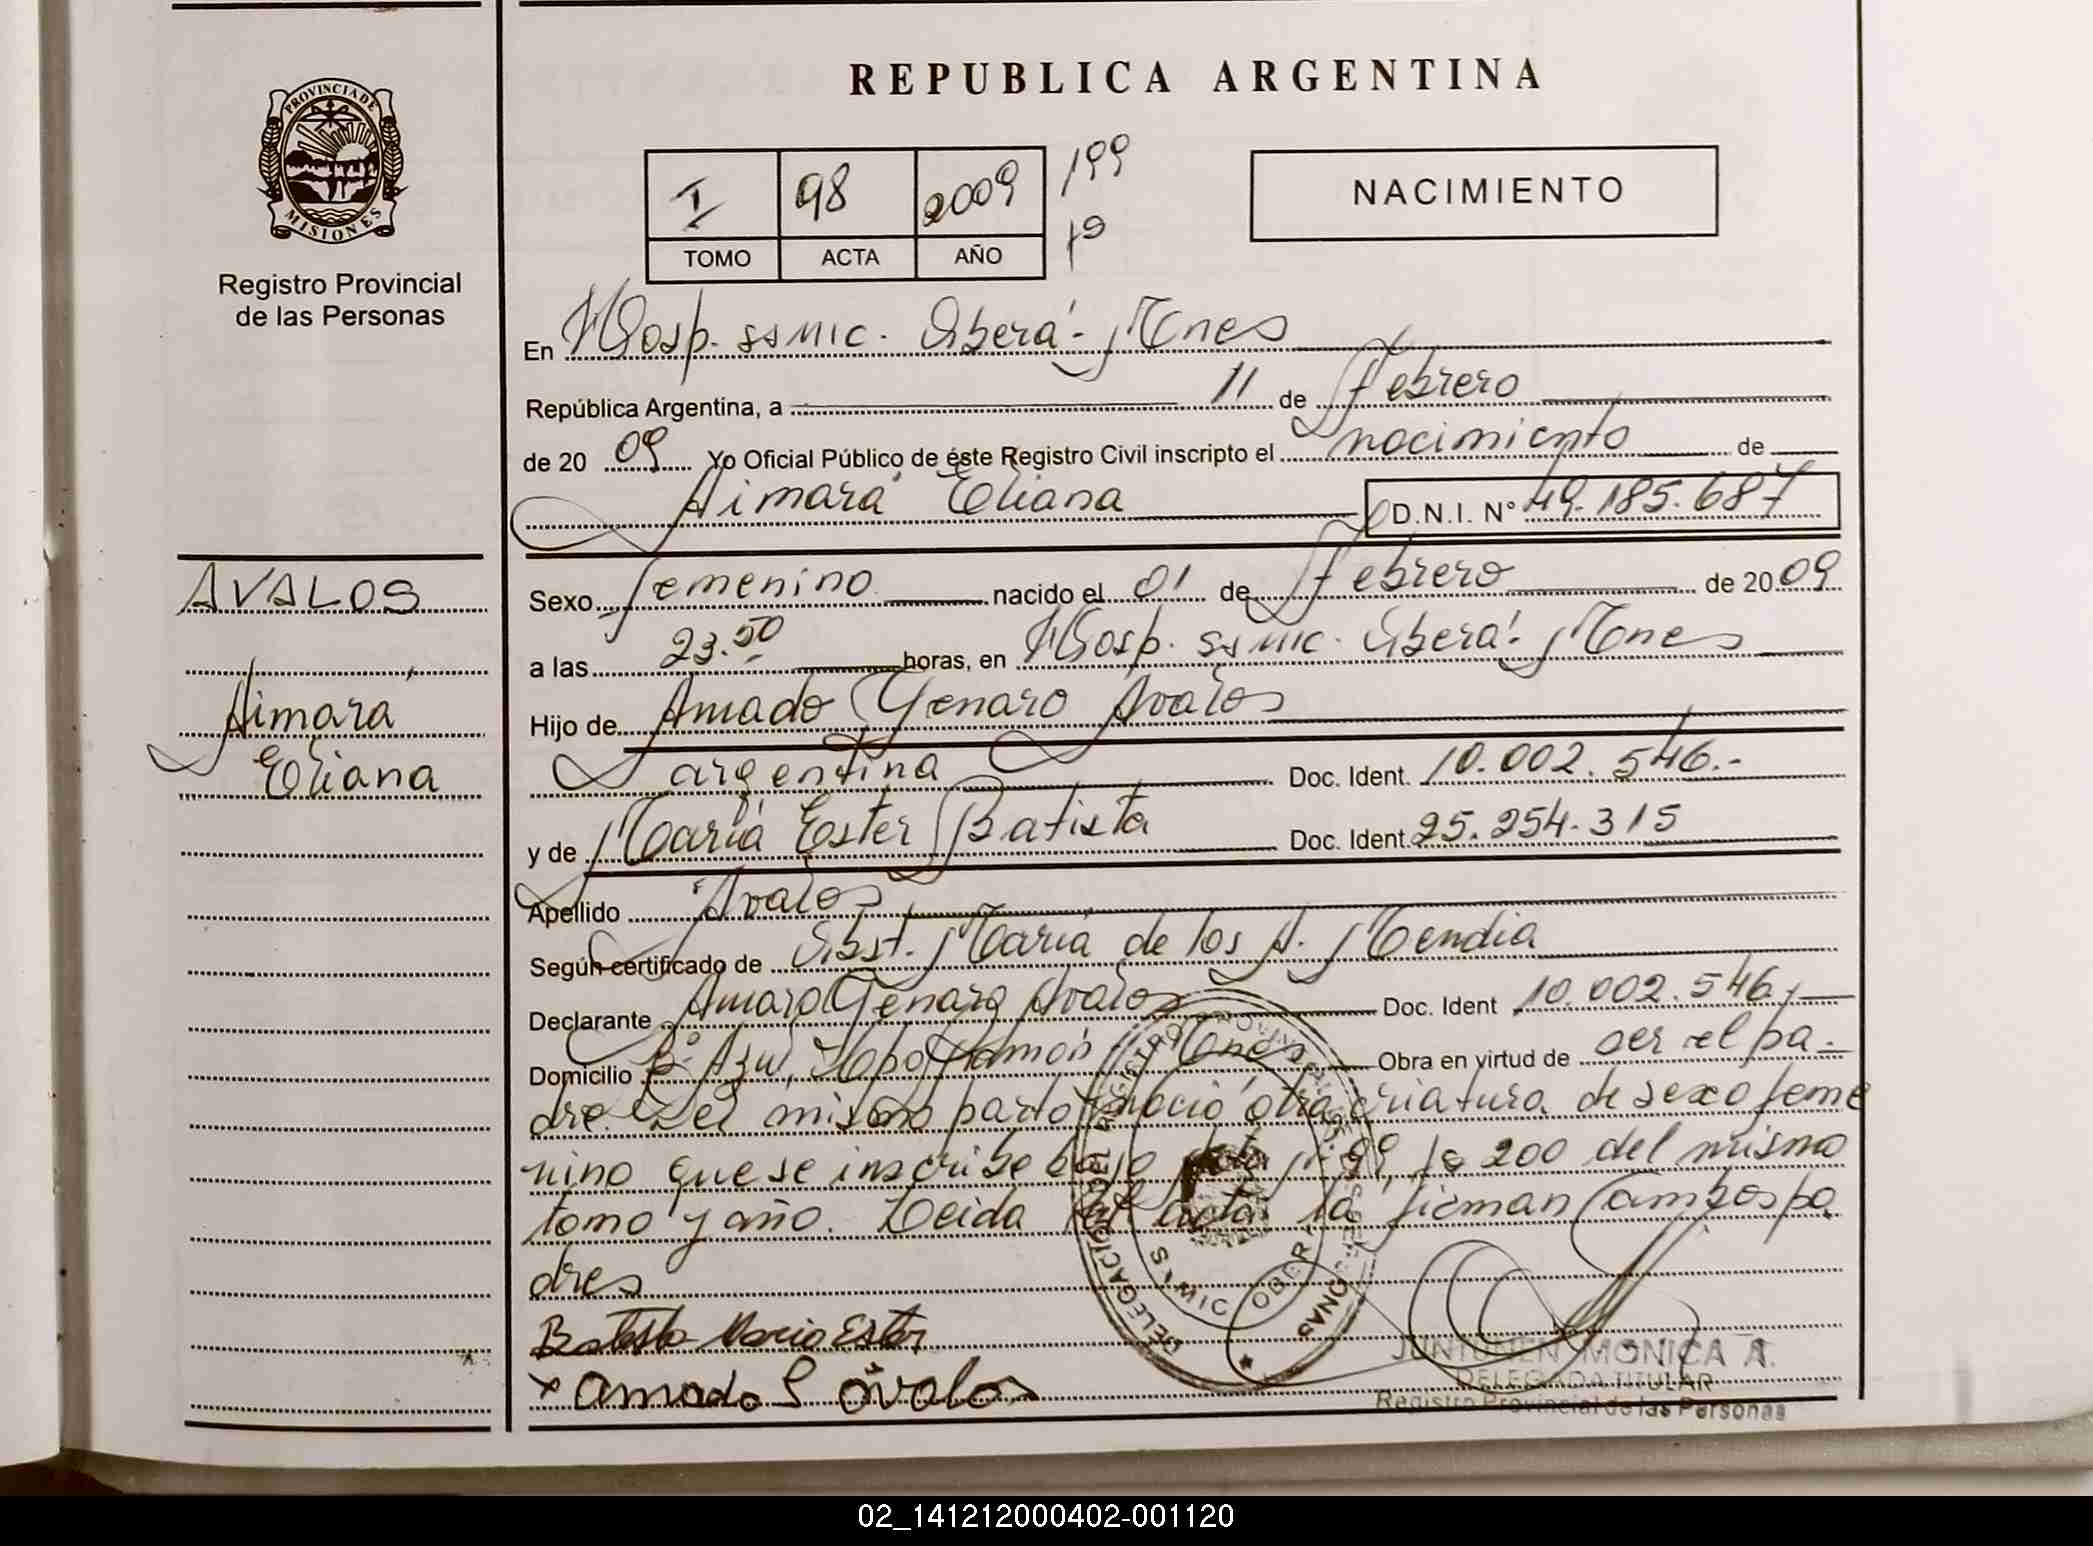 REPUBLICA ARGENTINA
PROVINCIA DE
MISIONES
Registro Provincial
de las Personas
I 98 2009 199
TOMO ACTA AÑO
NACIMIENTO
En Hosp. SSMIC. Oberá - Mnes
República Argentina, a 11 de febrero
de 2009 Yo Oficial Público de éste Registro Civil inscripto el nacimiento de
Aimará Eliana D.N.I. N° 49.185.687
AVALOS
Aimará
Eliana
Sexo femenino nacido el 01 de febrero de 2009
a las 23.50 horas, en Hosp. SSMIC. Oberá - Mnes
Hijo de Amado Genaro Avalos
argentina Doc. Ident. 10.002.546.-
y de María Ester Batista Doc. Ident. 25.254.315
Apellido Avalos
Según certificado de Obst. María de los A. Mendia
Declarante Amaro Genaro Avalos Doc. Ident 10.002.546.-
Domicilio B° Azul, Cpo Ramón Mnes Obra en virtud de ser el pa-
dre. Del mismo parto nació otra criatura de sexo feme
nino que se inscribe bajo acta n° 99, f° 200 del mismo
tomo y año. Leida el acta la firman ambos pa
dres
Batista Maria Ester
x amado G avalos
DELEGACION DEL REGISTRO PROVINCIAL DE LAS PERSONAS
SSMIC OBERA
JUNTUNEN MONICA A.
DELEGADA TITULAR
Registro Provincial de las Personas
02_141212000402-001120